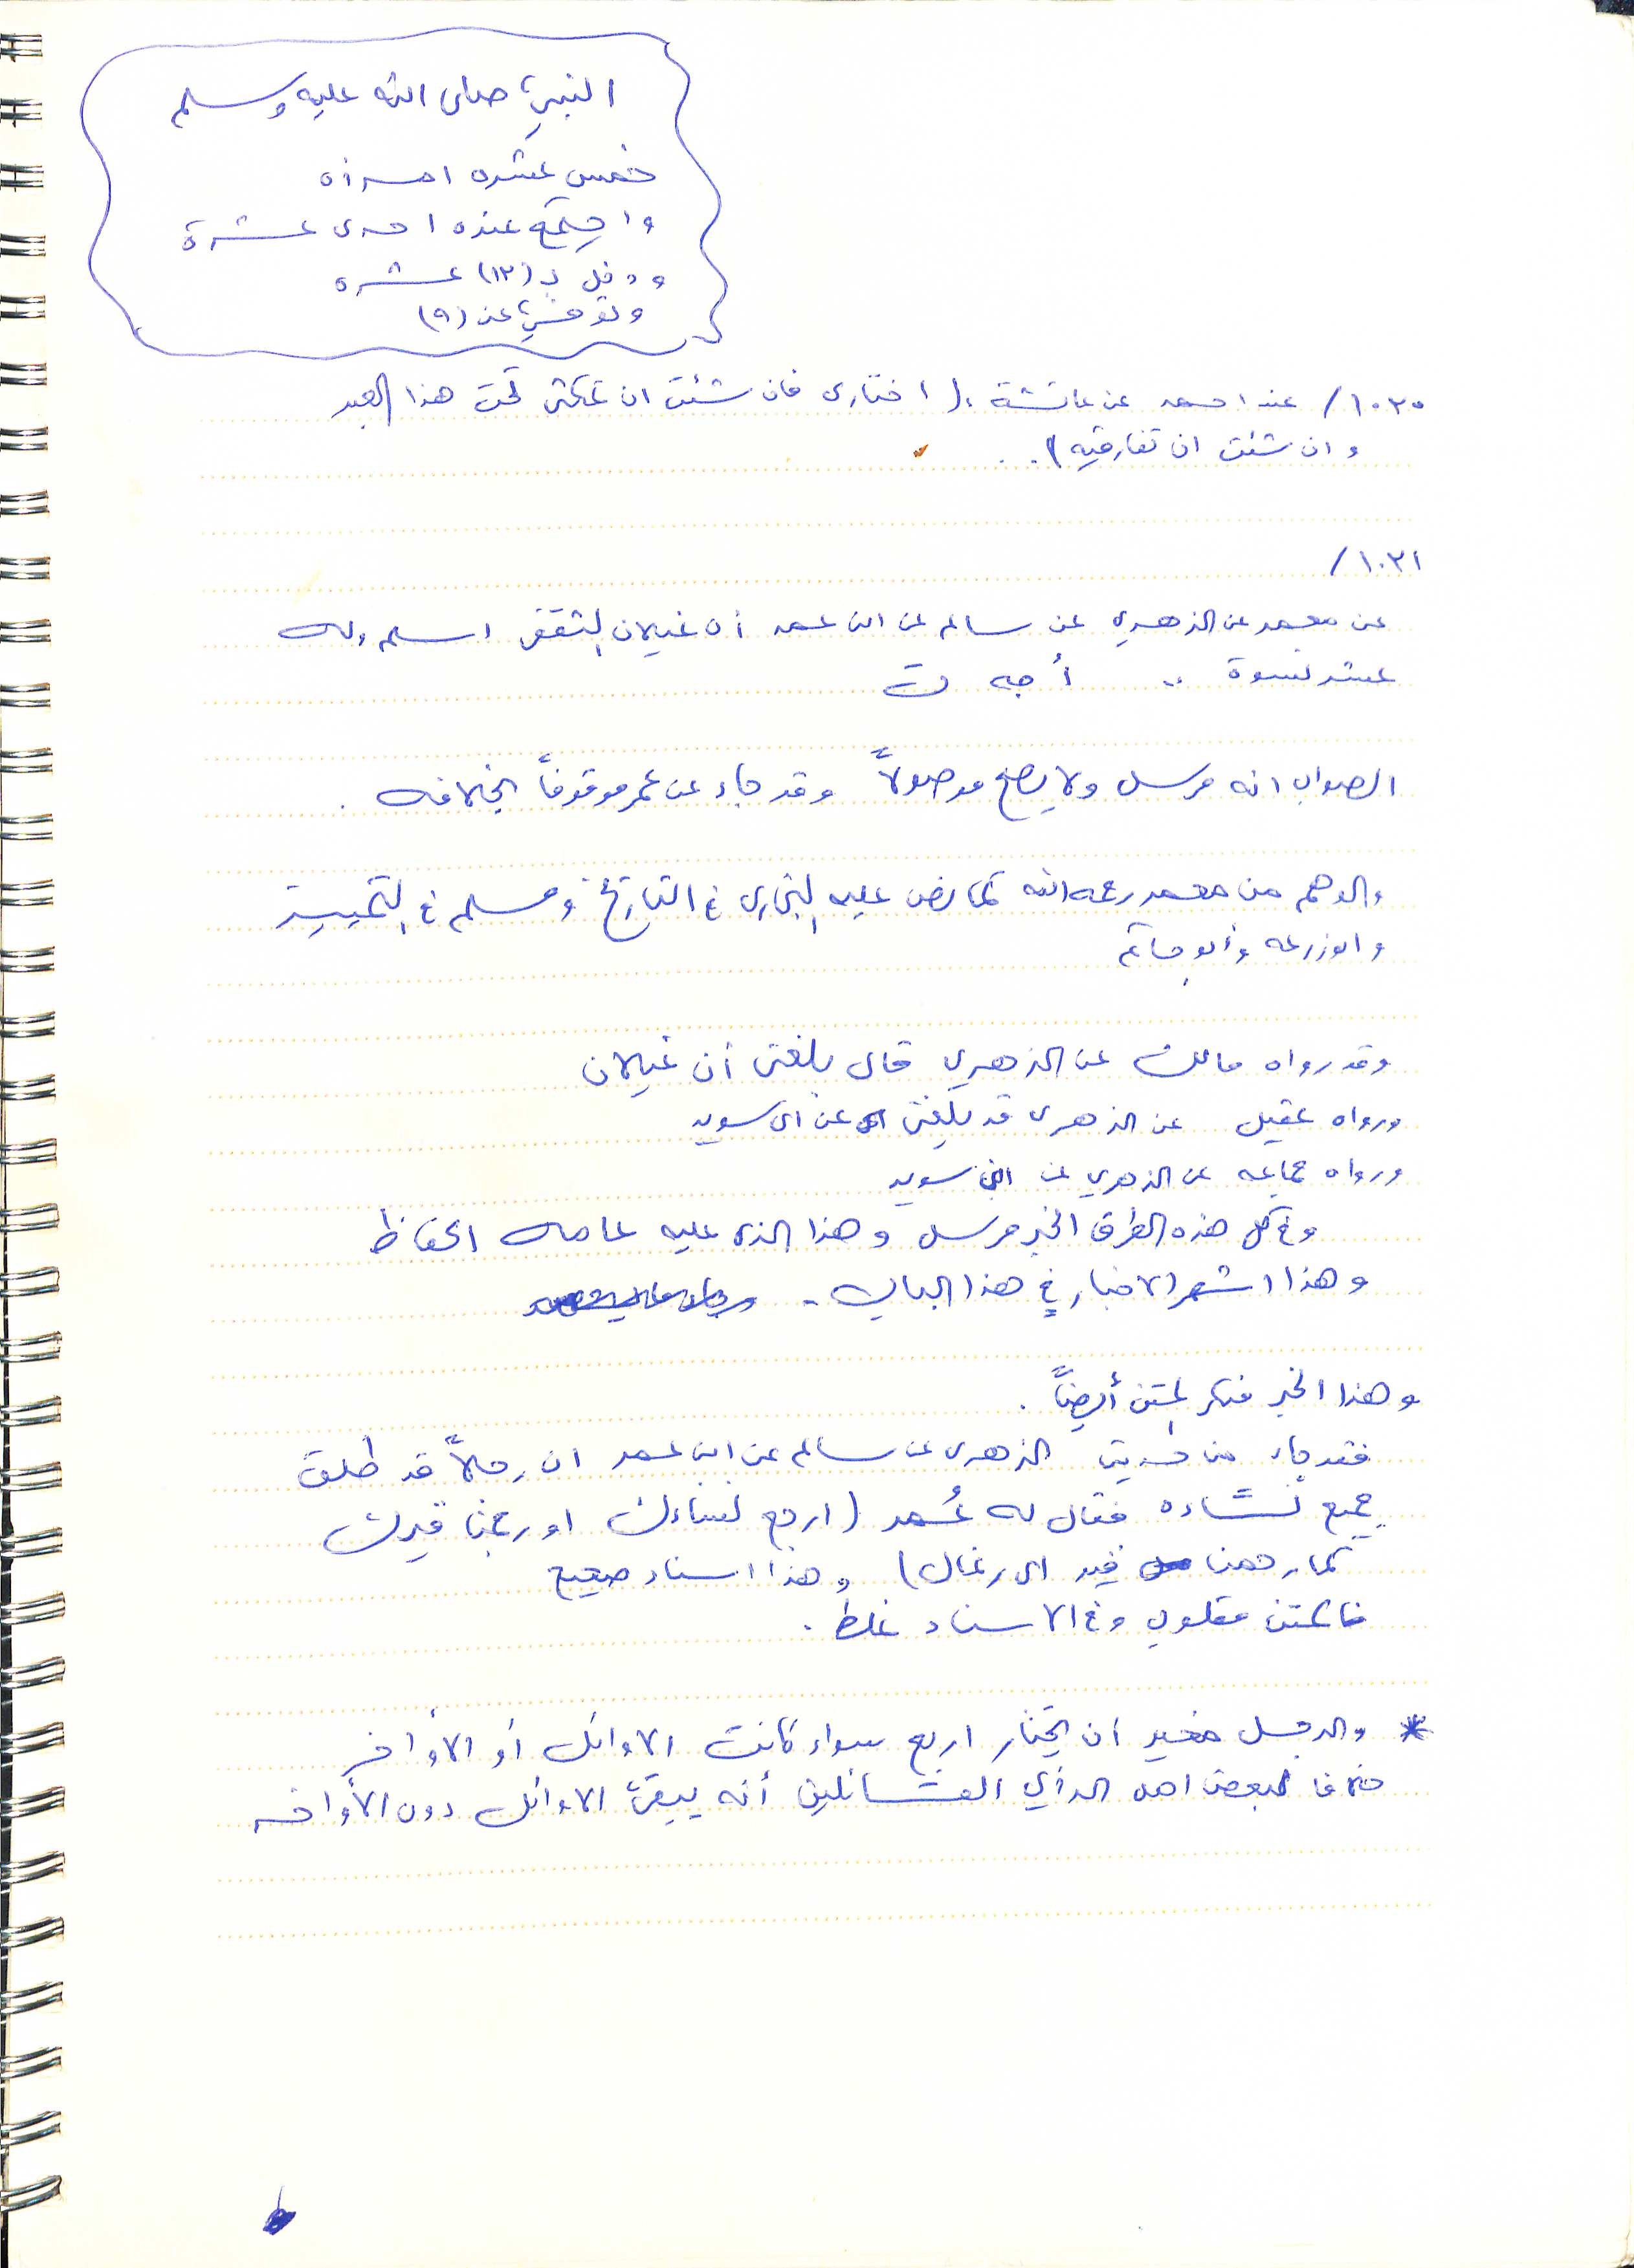 النبي صلى الله عليه وسلم
خمس عشره امرأه
واجتمع عنده احدى عشرة
ودخل بـ (١٣) عشره
وتوفي عن (٩)
١٠٣٠/ عند احمد عن عائشة: (اختاري فان شئت ان تمكثي تحت هذا العبد
وان شئت ان تفارقيه)..
١٠٣١/
عن معمر عن الزهري عن سالم عن ابن عمر أن غيلان الثقفي اسلم وله
عشر نسوة .. أ جه ت
الصواب انه مرسل ولا يصح موصولاً وقد جاء عن عمر موقوفاً بخلافه.
والوهم من معمر رحمه الله كما نص عليه البخاري في التاريخ ومسلم في التمييز
وابوزرعه وأبو حاتم
وقد رواه مالك عن الزهري قال بلغني أن غيلان
ورواه عقيل عن الزهري قد بلغني عن ابي سويد
ورواه جماعه عن الزهري عن ابي سويد
وفي كل هذه الطرق الخبر مرسل وهذا الذي عليه عامه الحفاظ
وهذا اشهر الاخبار في هذا الباب.
وهذا الخبر منكر المتن أيضاً.
فقد جاء من طريق الزهري عن سالم عن ابن عمر ان رجلاً قد طلق
جميع نساءه فقال له عُمر (ارجع نساءك او رجمنا قبرك
كما رجمنا قبر ابي رغال) وهذا اسناد صحيح
فالمتن مقلوب وفي الاسناد غلط.
* والرجل مخير أن يختار اربع سواء كانت الاوائل أو الأواخر
خلافا لبعض اهل الرأي القائلين أنه يبقي الاوائل دون الأواخر